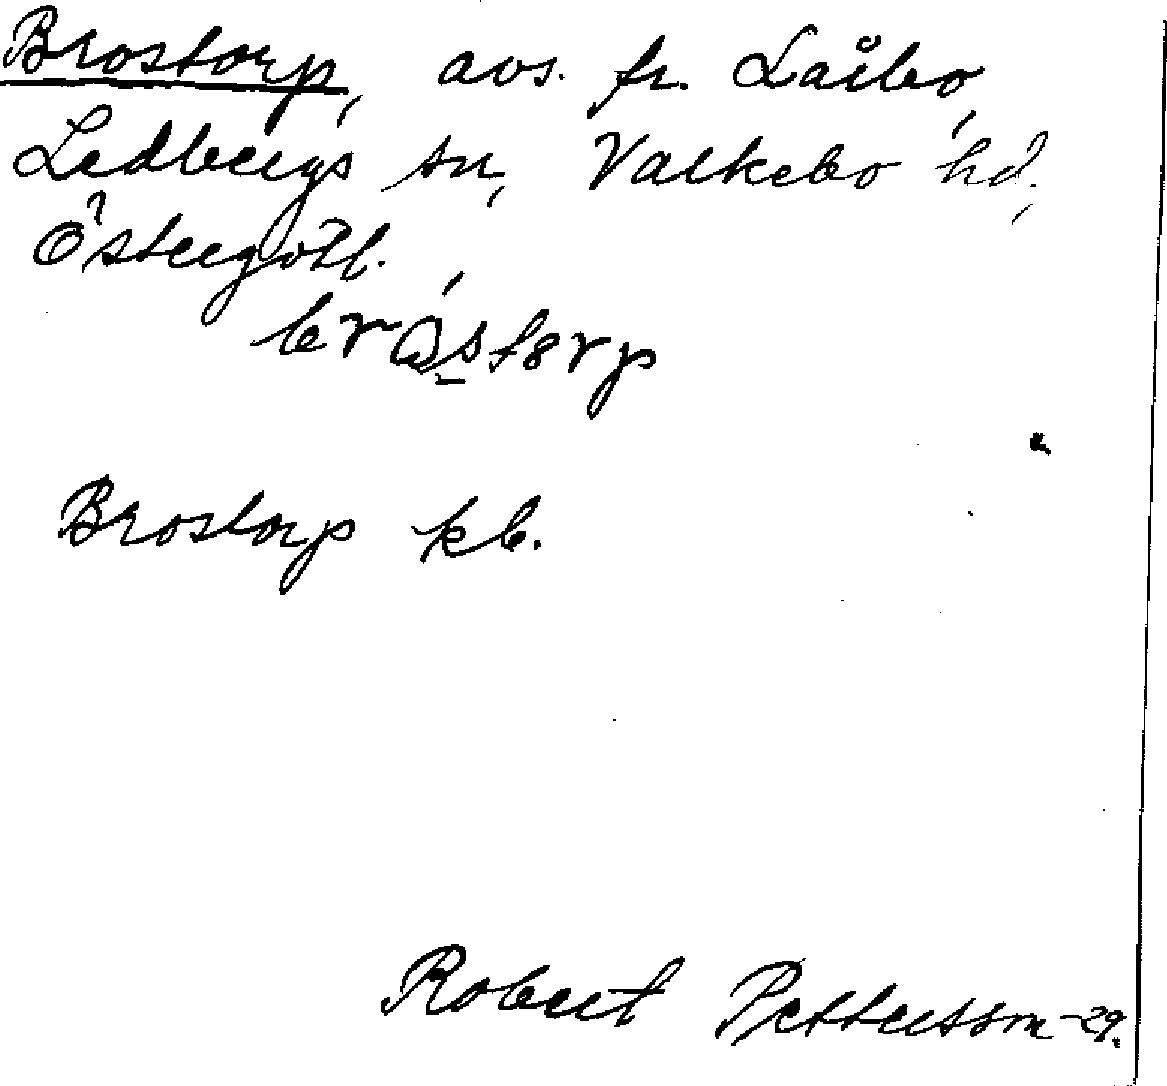 Brostorp, avs. fr. Låibo,
Ledbergs sn, Valkebo hd.,
Östergötl.
Brostorp kb.
Robert Pettersson -29.